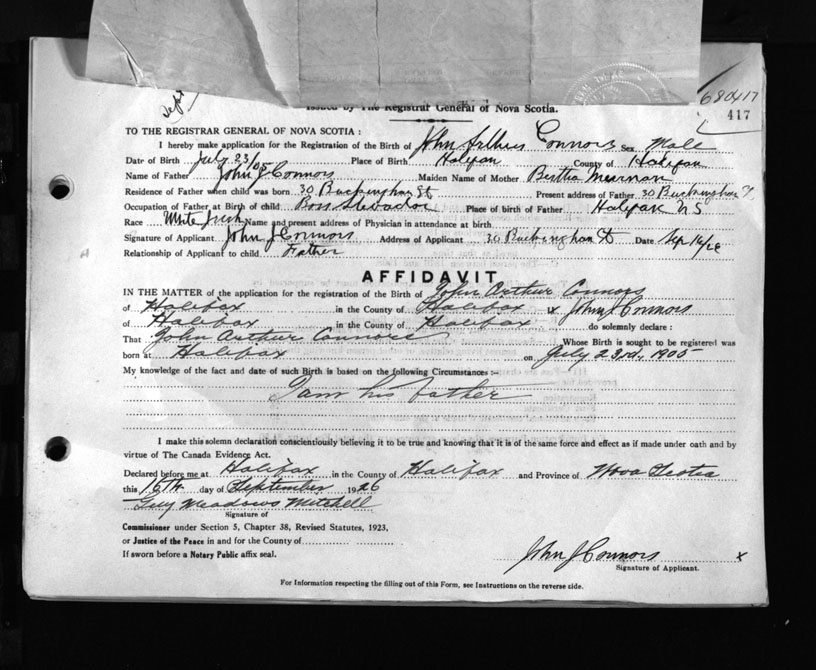 680417
417
Sept
Issued by The Registrar General of Nova Scotia.
TO THE REGISTRAR GENERAL OF NOVA SCOTIA :
I hereby make application for the Registration of the Birth of John Arthur Connors Sex Male
Date of Birth July 23/05 Place of Birth Halifax County of Halifax
Name of Father John J Connors Maiden Name of Mother Bertha
Residence of Father when child was born 30 Buckingham St Present address of Father 30 Buckingham St
Occupation of Father at Birth of child Boss Stevadoe Place of birth of Father Halifax N S
Race White Irish Name and present address of Physician in attendance at birth
Signature of Applicant John J Connors Address of Applicant 30 Buckingham St Date Sep 16/26
Relationship of Applicant to child Father
AFFIDAVIT
IN THE MATTER of the application for the registration of the Birth of John Arthur Connors
of Halifax in the County of Halifax John J Connors
of Halifax in the County of Halifax do solemnly declare :
That John Arthur Connors Whose Birth is sought to be registered was
born at Halifax on July 23rd, 1905
My knowledge of the fact and date of such Birth is based on the following Circumstances :-
I am his father
I make this solemn declaration conscientiously believing it to be true and knowing that it is of the same force and effect as if made under oath and by
virtue of The Canada Evidence Act.
Declared before me at Halifax in the County of Halifax and Province of Nova Scotia
this 16th day of September 1926
Guy Meadows Mitchell
Signature of
Commissioner under Section 5, Chapter 38, Revised Statutes, 1923,
or Justice of the Peace in and for the County of
If sworn before a Notary Public affix seal.
John J Connors x
Signature of Applicant.
For Information respecting the filling out of this Form, see Instructions on the reverse side.